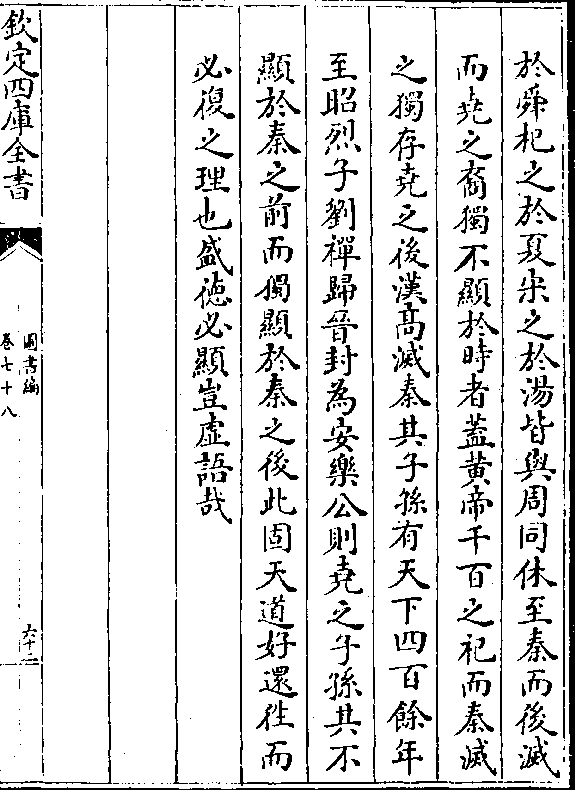 於舜杞之於夏宋之於湯皆與周同休至秦而後滅
而堯之裔獨不顯於時者蓋黄帝千百之祀而秦滅
之獨存堯之後漢高滅秦其子孫有天下四百餘年
至昭烈子劉禪歸晉封為安樂公則堯之子孫其不
顯於秦之前而獨顯於秦之後此固天道好還徃而
必復之理也盛徳必顯豈虚語哉
欽定四庫全書
圖書編
卷七十八
六十二